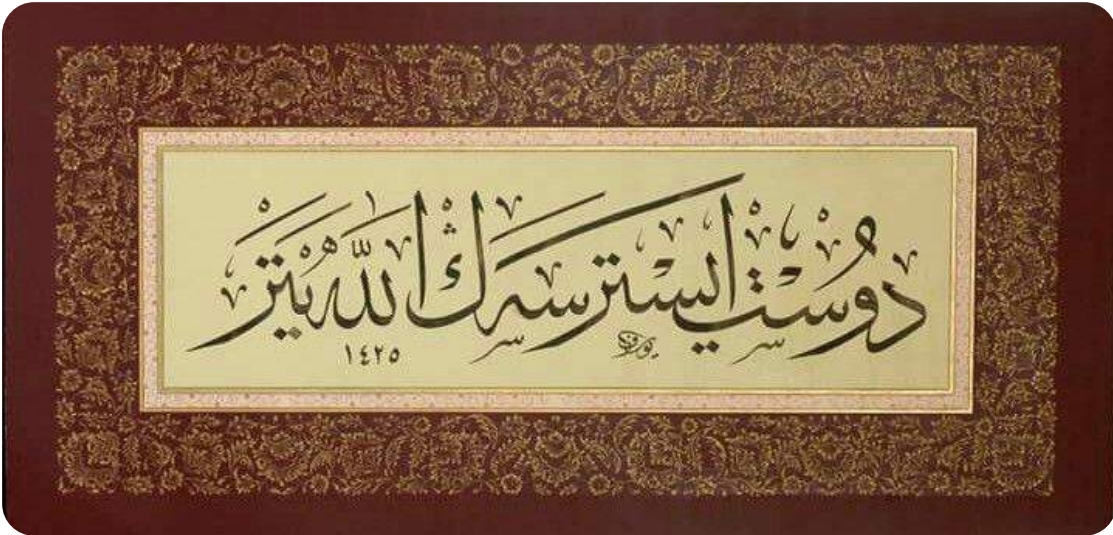 دوست ایسترسەك اللّٰه یتر
١٤٢٥